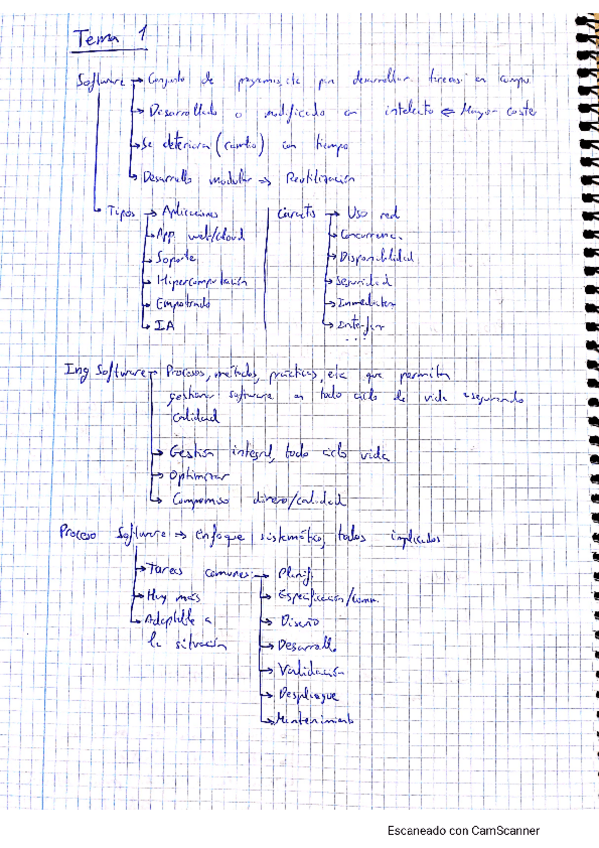 Tema 1
Software → Conjunto de programas, etc para desarrollar tareas en
→ Desarrollado o modificado en intelecto ⇐ Mayor coste
→ Se deteriora (cambio) con tiempo
→ Desarrollo modular → Reutilización
Tipos → Aplicaciones
→ App web/cloud
→ Soporte
→ Hipercomputación
→ Empotrado
→ IA
→ Uso red
→ Concurrenc.
→ Disponibilidad
→ Seguridad
→ Inmediatez
→ Interfaz
...
Ing Software → Procesos, métodos, prácticas, etc que permiten
gestionar software en todo ciclo de vida asegurando
calidad
→ Gestión integral, todo ciclo vida
→ Optimizar
→ Compromiso dinero/calidad
Proceso Software → enfoque sistemático, todos implicados
→ Tareas comunes → Planif.
→ Especificación/comun.
→ Diseño
→ Desarrollo
→ Validación
→ Despliegue
→ Mantenimiento
→ Hay más
→ Adaptable a
la situación
Escaneado con CamScanner